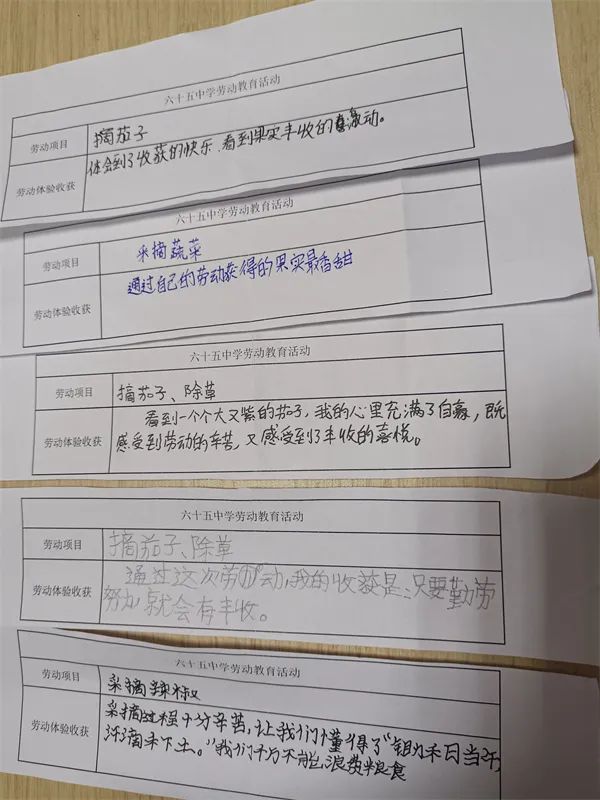 六十五中学劳动教育活动
劳动项目 摘茄子
劳动体验收获 体会到了收获的快乐、看到果实丰收的激动。
六十五中学劳动教育活动
劳动项目 采摘蔬菜
劳动体验收获 通过自己的劳动获得的果实最香甜
六十五中学劳动教育活动
劳动项目 摘茄子、除草
看到一个个大又紫的茄子，我的心里充满了自豪，既
劳动体验收获 感受到劳动的辛苦，又感受到了丰收的喜悦。
六十五中学劳动教育活动
劳动项目 摘茄子、除草
通过这次劳动，我的收获是：只要勤劳
劳动体验收获 努力就会有丰收。
六十五中学劳动教育活动
劳动项目 采摘辣椒
采摘过程十分辛苦，让我们懂得了“锄禾日当午，
劳动体验收获 汗滴禾下土。”我们千万不能浪费粮食